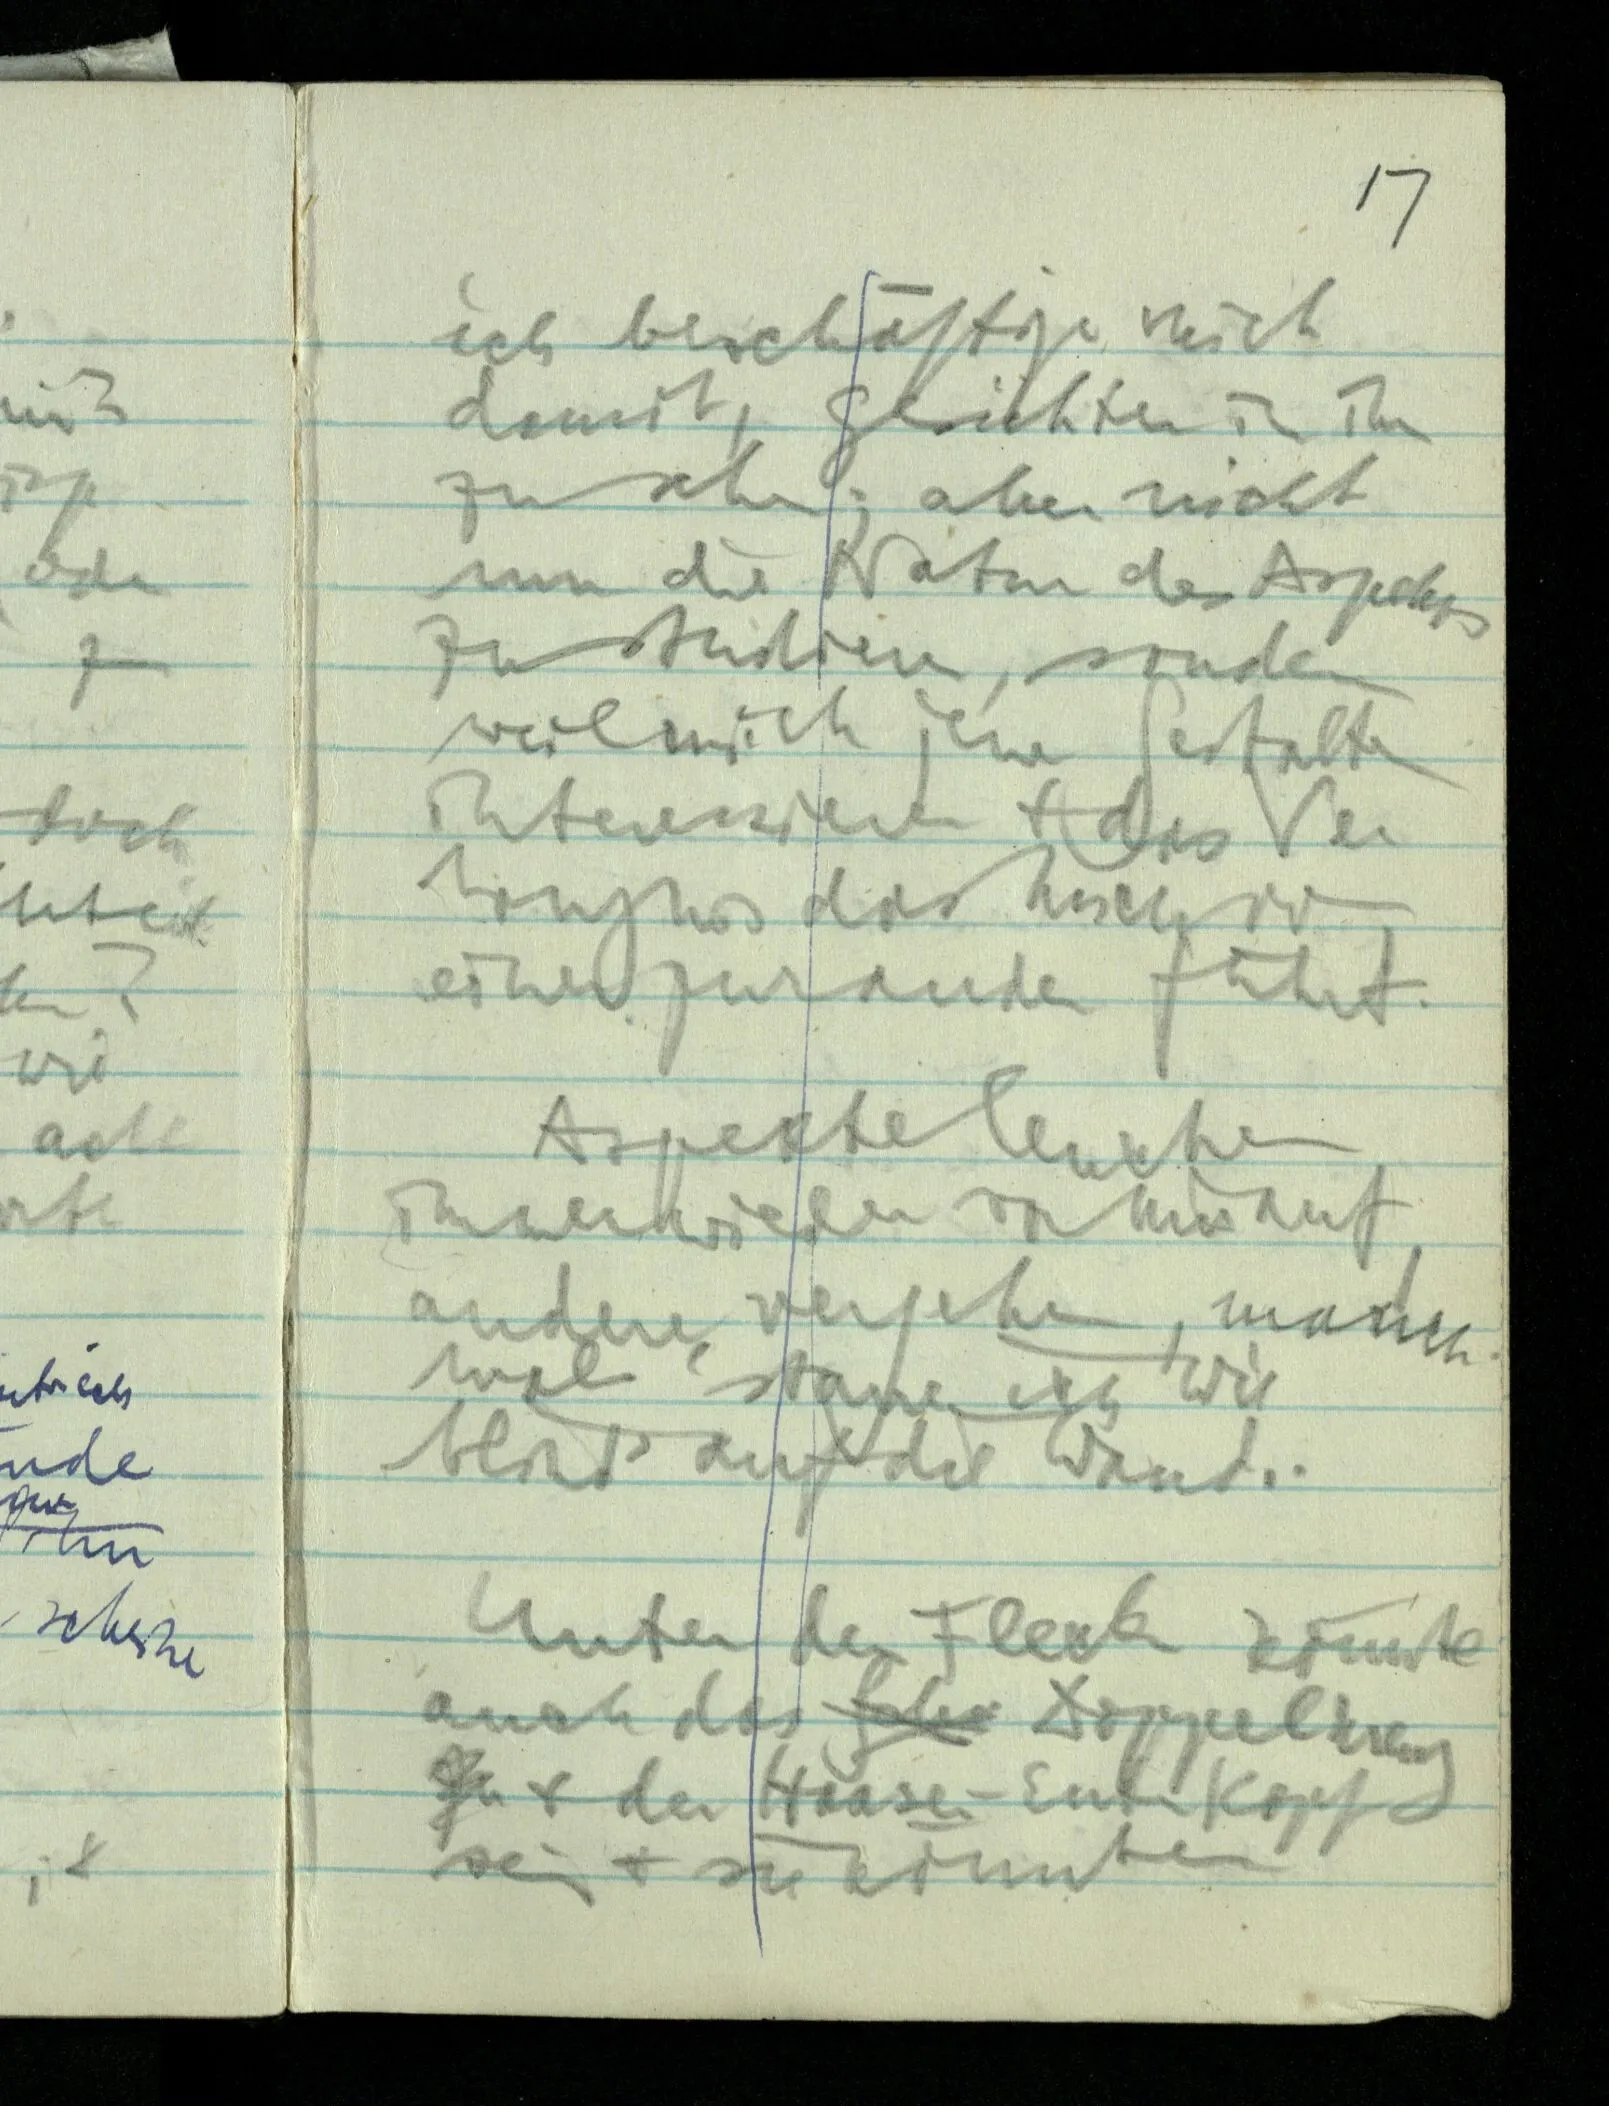 17
ich beschäftige mich
damit, Gesichter in ihm
zu sehen; aber nicht
um die Natur des Aspekts
zu studieren, sondern
weil mich jene Gestalten
interessieren & das Ver
hängnis das mich von
einer zur andern führt.
Aspekte leuchten
immer wieder vor mir auf,
andere vergehen, manch-
mal 'starre ich wie
blind auf die Wand'.
Unter den Flecken könnte
auch das Doppelkreuz
& der Hasen-Enten Kopf
sein & sie könnten
doch
oder
wie
ende
gut
ihn
, &